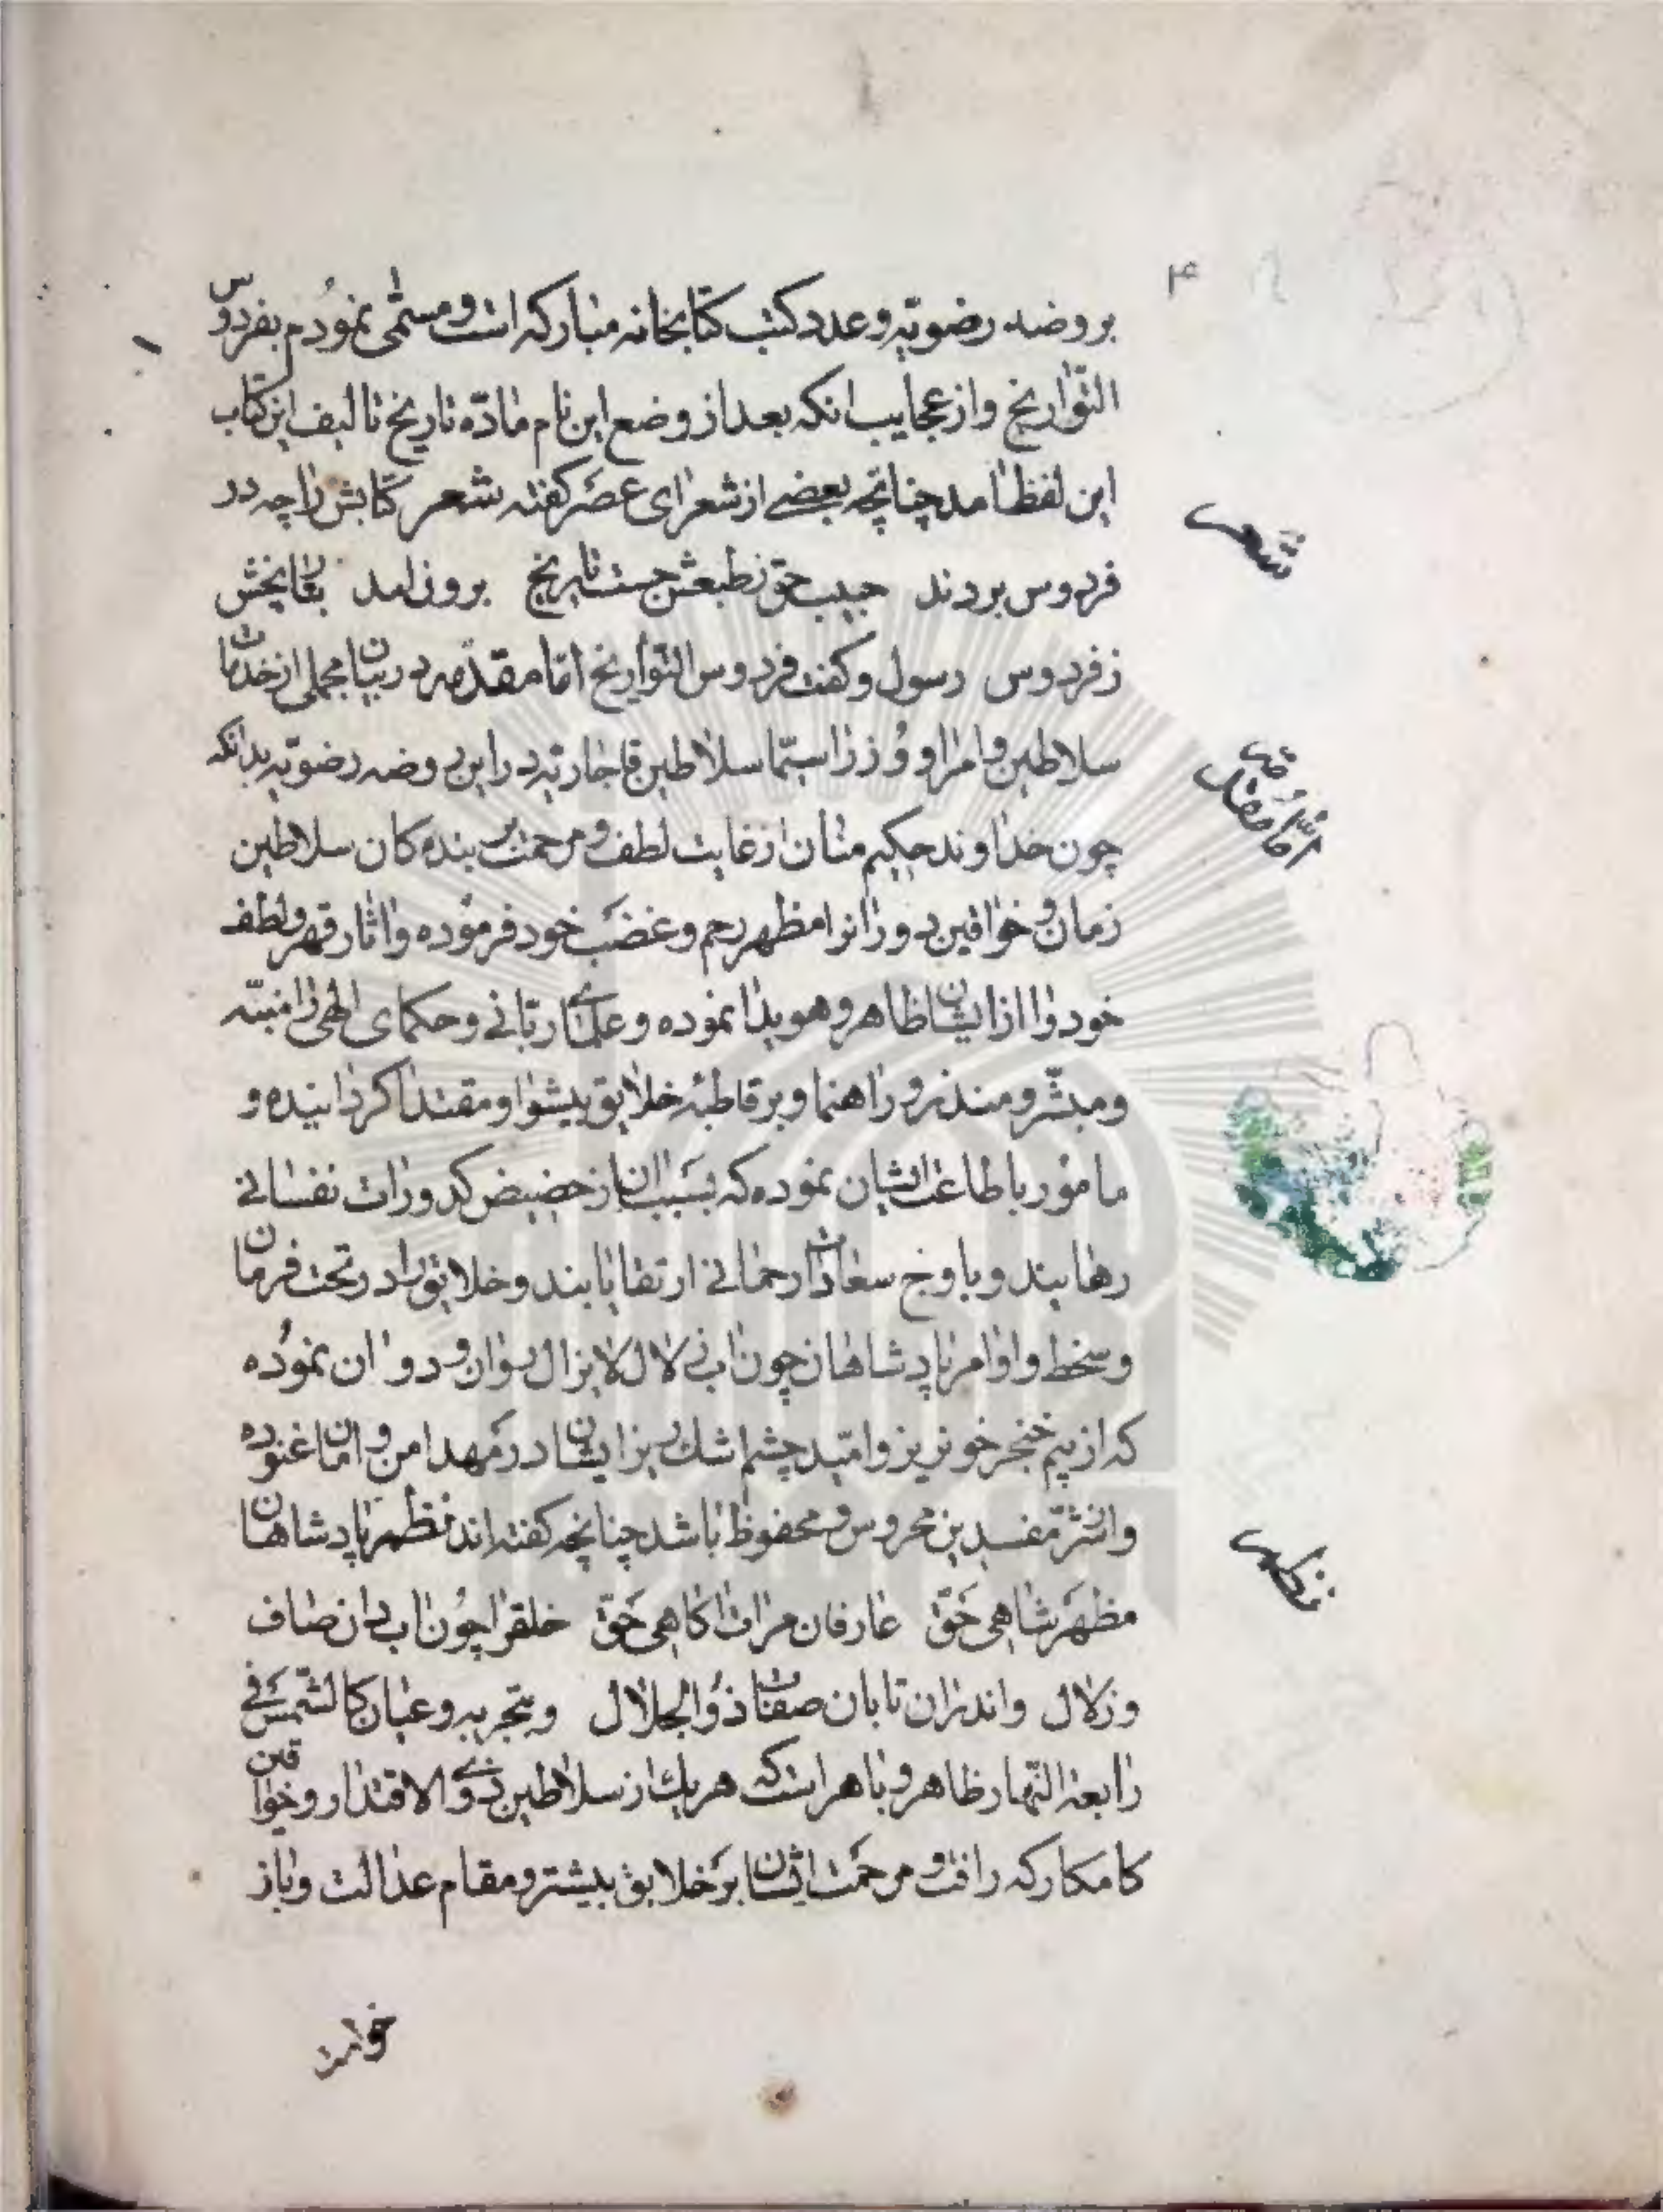 ۴
بروضه رضویّه و عدد کتب کتابخانه مبارکه است و مسمّی نمودم بفردوس
التّواریخ و از عجایب انکه بعد از وضع این نام مادّه تاریخ تالیف این کتاب
این لفظ امد چنانچه بعضے از شعرای عصر کفته شعر کتابش را چه در
شعر
فردوس بردند حبیب حق زطبعش جست تاریخ برون امد بقا بخش
زفردوس رسول و کفت فردوس التواریخ امّا مقدّمه در بیان مجملی از خدمات
سلاطین و امرا و وزرا سیّما سلاطین قاجاریّه در این روضه رضویّه بدانکه
امّا مقدّمه
چون خداوند حکیم منان از غایت لطف و مرحمت بر بنده کان سلاطین
زمان و خواقین دورانرا مظهر رحم و غضب خود فرموده و اثار قهر و لطف
خود را از ایشان ظاهر و هویدا نموده و علمای ربّانے و حکمای الهی را منبّه
و مبشّر و منذر و راهنما و بر قاطبهٔ خلایق پیشوا و مقتدا کردانیده و
مامور باطاعت ایشان نموده که بسبب ان از حضیض کدورات نفسانے
رهایند و باوج سعادات رحمانے ارتقا یابند و خلایق را در تحت فرمان
و سخط و اوامر پادشاهان چون اب زلال لایزال روان و دوان نموده
که از بیم خنجر خونریز و امّید چشم اشك ریز ایشان در مهد امن و امان غنوده
و از شرّ مفسدین محروس و محفوظ باشد چنانچه کفته اند نظم پادشاهان
نظم
مظهر شاهی حَقّ عارفان مرات اکاهی حَقّ خلقرا چون اب دان صاف
و زلال واندران تابان صفات ذوالجلال و بتجربه و عیان کالشّمس فے
رابعة النّهار ظاهر و باهر است که هریك از سلاطین ذوے الاقتدار و خواقین
کامکار که رافت و مرحمت ایشان بر خلایق بیشتر و مقام عدالت و باز
خواست